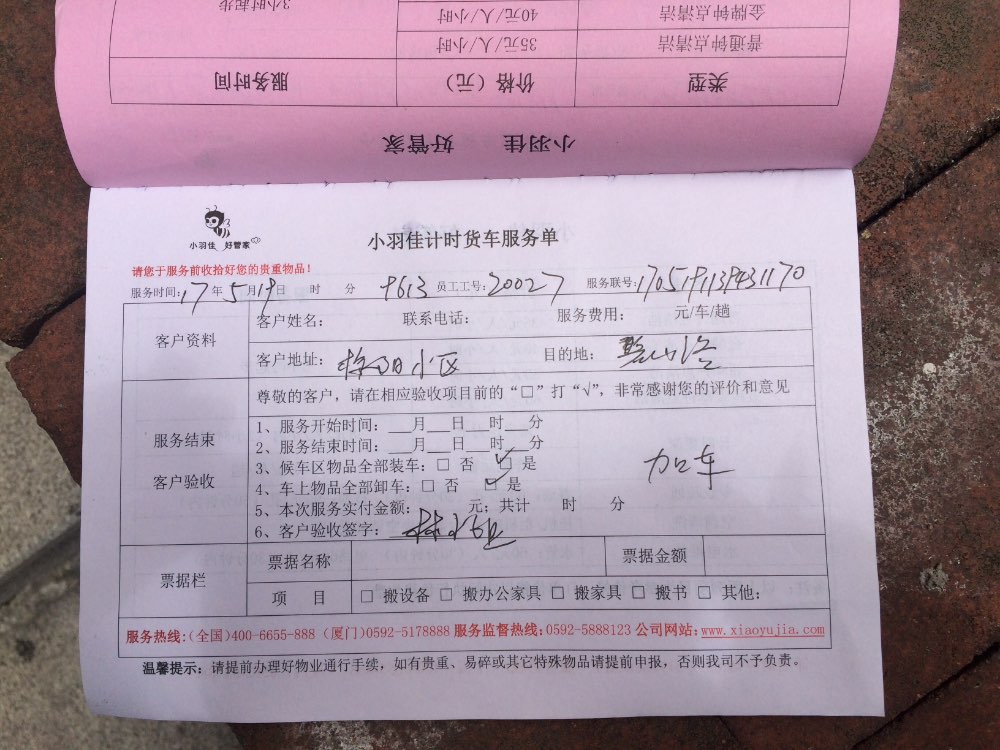 3小时起步
金牌钟点清洁 40元/人/小时
普通钟点清洁 35元/人/小时
类型 价格（元） 服务时间
小羽佳 好管家
小羽佳 好管家
小羽佳计时货车服务单
请您于服务前收拾好您的贵重物品！
服务时间：17年5月19日 时 分 9613 员工工号：20027 服务联号：
客户资料
客户姓名： 联系电话： 服务费用： 元/车/趟
客户地址： 小区 目的地：
服务结束
客户验收
尊敬的客户，请在相应验收项目前的“□”打“√”，非常感谢您的评价和意见
1、服务开始时间：___月___日___时___分
2、服务结束时间：___月___日___时___分
3、候车区物品全部装车：□ 否 ☑ 是
4、车上物品全部卸车：□ 否 ☑ 是
加车
5、本次服务实付金额： 元；共计 时 分
6、客户验收签字：
票据栏
票据名称 票据金额
项 目 □ 搬设备 □ 搬办公家具 □ 搬家具 □ 搬书 □ 其他：
服务热线：(全国)400-6655-888 (厦门)0592-5178888 服务监督热线：0592-5888123 公司网站：www.xiaoyujia.com
温馨提示：请提前办理好物业通行手续，如有贵重、易碎或其它特殊物品请提前申报，否则我司不予负责。